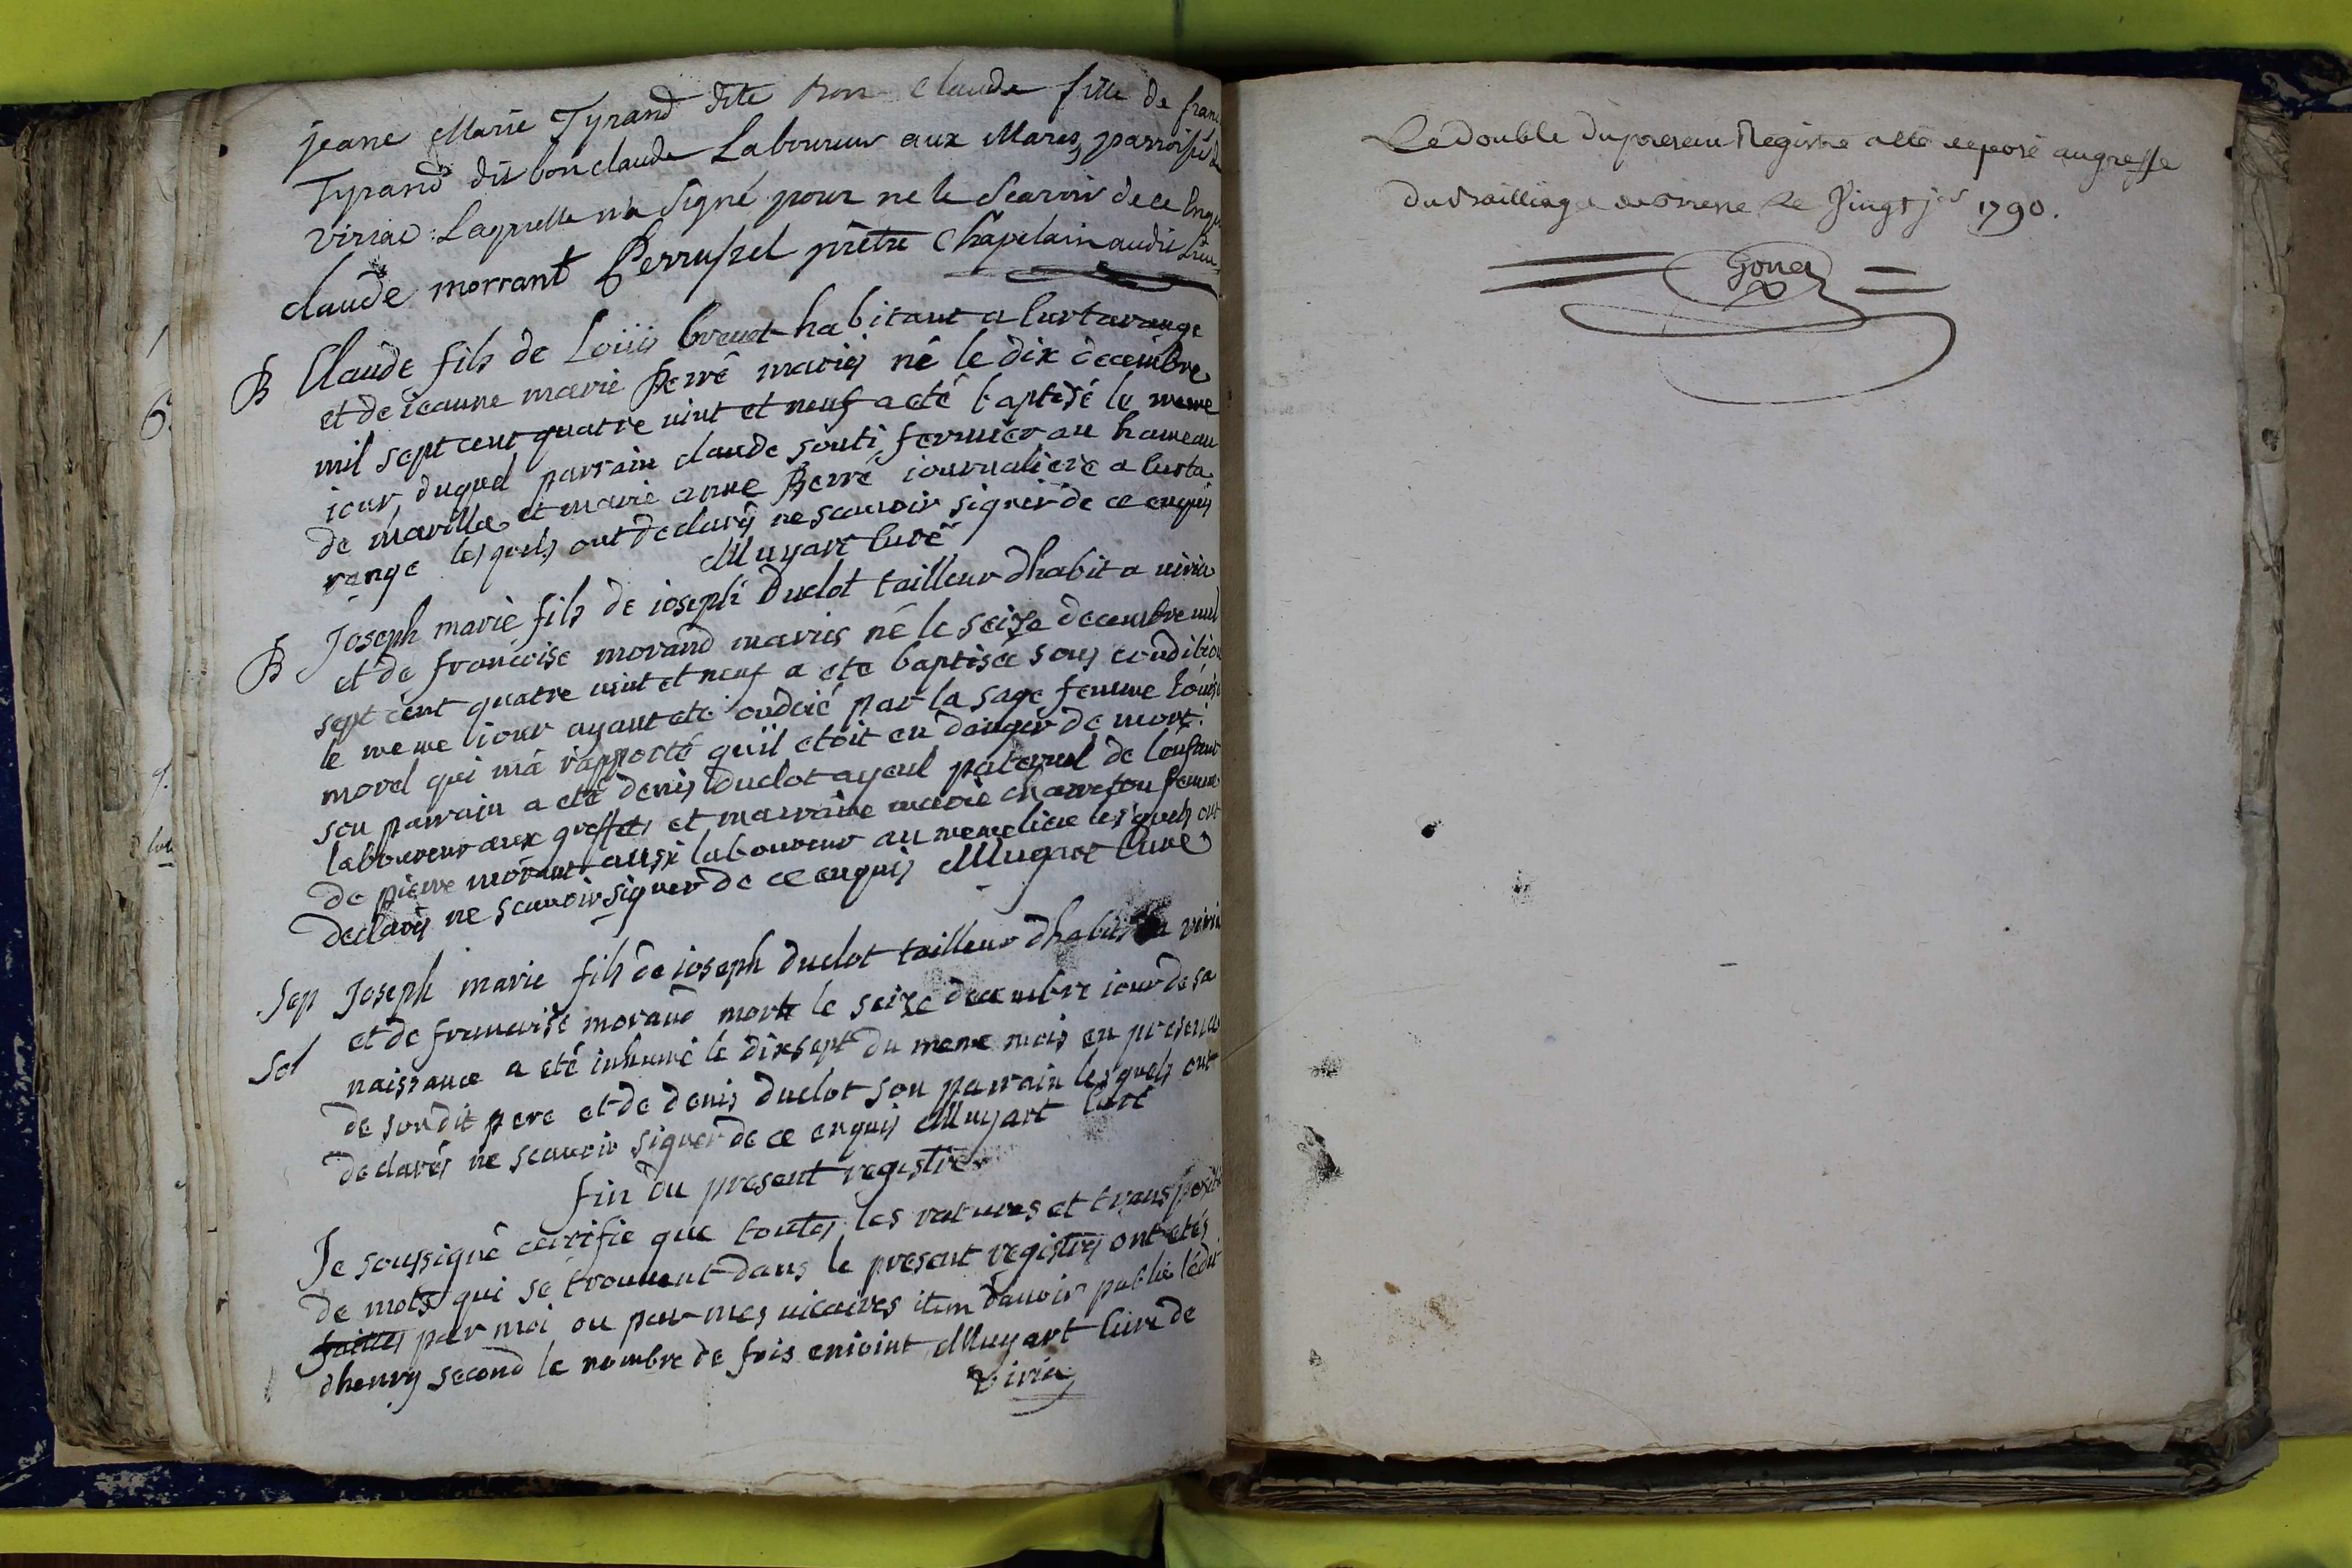 jeane Marie Tyrand dite bon Claude fille de franc
Tyrand dit bon claude Laboureur aux Mares, parroisse de
Viriac: Laquelle n'a signé pour ne le Scavoir de ce Enqui
claude morrant Perrussel prêtre Chapelain audit Lieu
B Claude fils de Loüis brevet habitant a Curtarange
et de ieanne marie Perré mariés né le dix decembre
mil sept cent quatre vint et neuf a eté baptisé le meme
iour, duquel parrain claude souti fermier au hameau
de marillas et marie anne Perré iournaliere a Curta
range lesquels ont declarés ne scauoir signer de ce enquis
Muyart Curé
B Joseph marie fils de ioseph Duclot tailleur dhabit a viria
et de francoise morand mariés né le seize decembre mil
sept cent quatre vint et neuf a eté baptisée sous condition
le meme iour ayant eté ondoié par la sage femme Loüise
morel qui m'a rapporté qu'il etoit en danger de mort:
son parrain a eté denis Duclot ayeul paternel de lenfant
laboureur aux greffets et marraine marie charreton femme
de pierre morant aussi laboureur au meme lieu lesquels ont
declarés ne scauoir signer de ce enquis Muyart Curé
Sep Joseph marie fils de ioseph duclot tailleur dhabits a viria
et de francoise morand mort le seize decembre iour de sa
Sol naissance a eté inhumé le dixsept du meme mois en presence
de sondit pere et de denis duclot son parrain lesquels ont
declarés ne scauoir signer de ce enquis Muyart Curé
fin du present registre
Je soussigné certifie que toutes les ratures et transposit
de mots qui se trouuent dans le present registres ont etés
faittes par moi ou par mes uicaires item dauoir publié lédit
dhenry second le nombre de fois enioint Muyart Curé de
Viria
Le double du present Registre a été deposé au greffe
du Bailliage de Bresse le Vingt jer 1790.